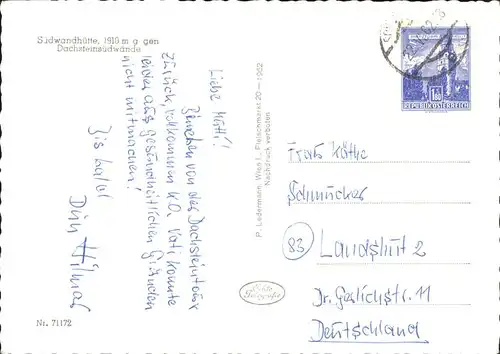 Südwandhütte, 1910 m g gen
Dachsteinsüdwände
Liebe Mutti!
Bin eben von der Dachsteintour
zurück, vollkommen k.o. Vati konnte
leider aus gesundheitlichen Gründen
nicht mitmachen!
Bis bald!
Dein Hilmar
Nr. 71172
P. Ledermann, Wien I., Fleischmarkt 20 — 1962
Nachdruck verboten
1.80
REPUBLIK ÖSTERREICH
Frau Käthe
Schmücker
83 Landshut 2
Dr. Geslichstr. 11
Deutschland